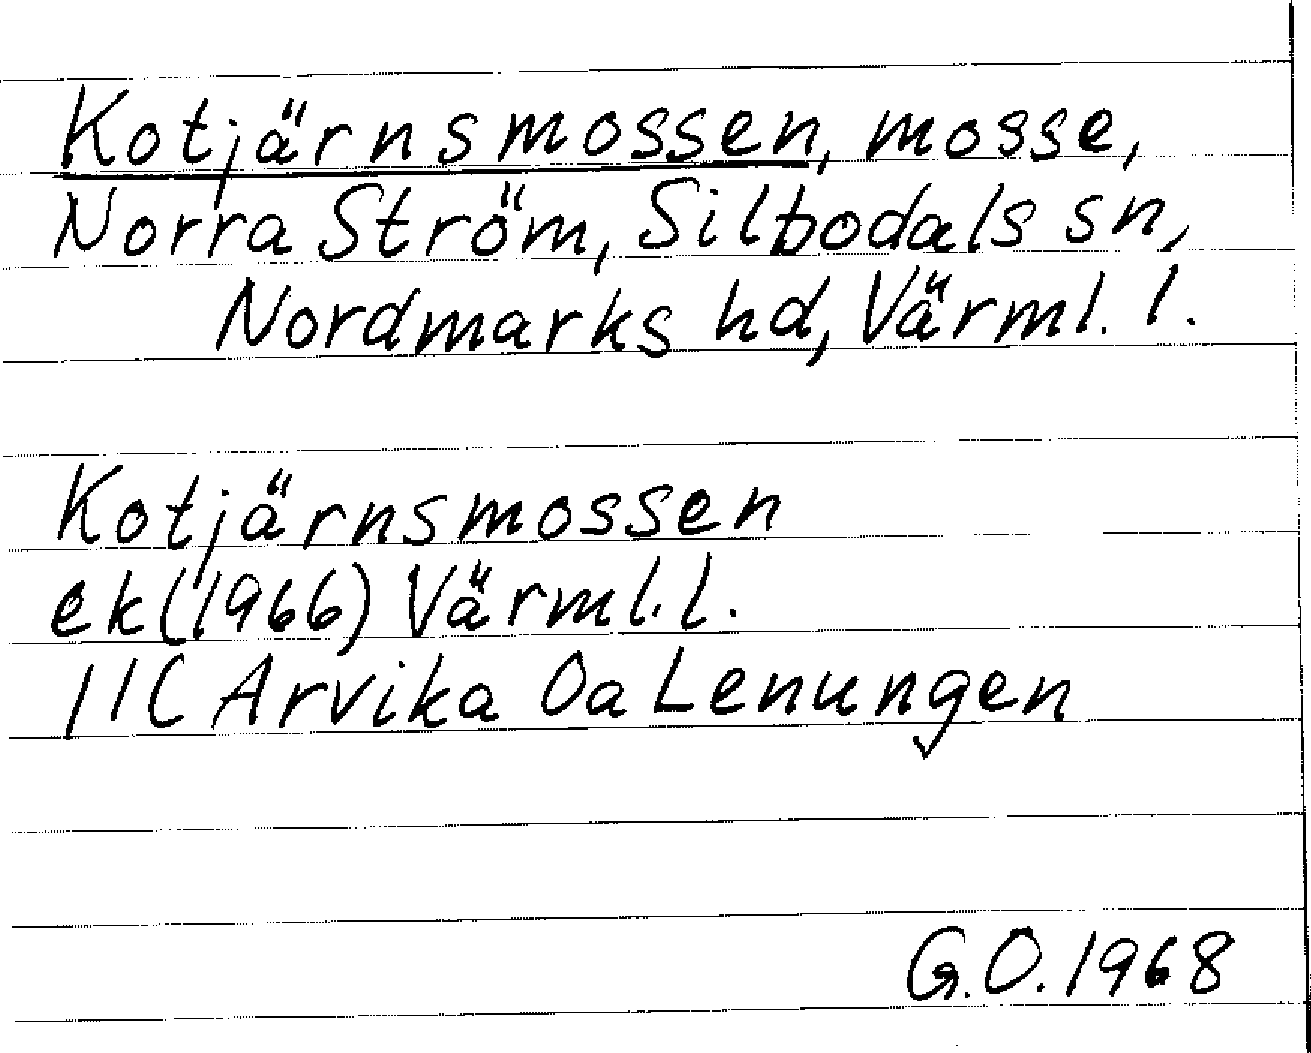 Kotjärnsmossen, mosse,
Norra Ström, Silbodals sn,
Nordmarks hd, Värml. l.
Kotjärnsmossen
ek (1966) Värml. l.
11C Arvika 0a Lenungen
G.O. 1968